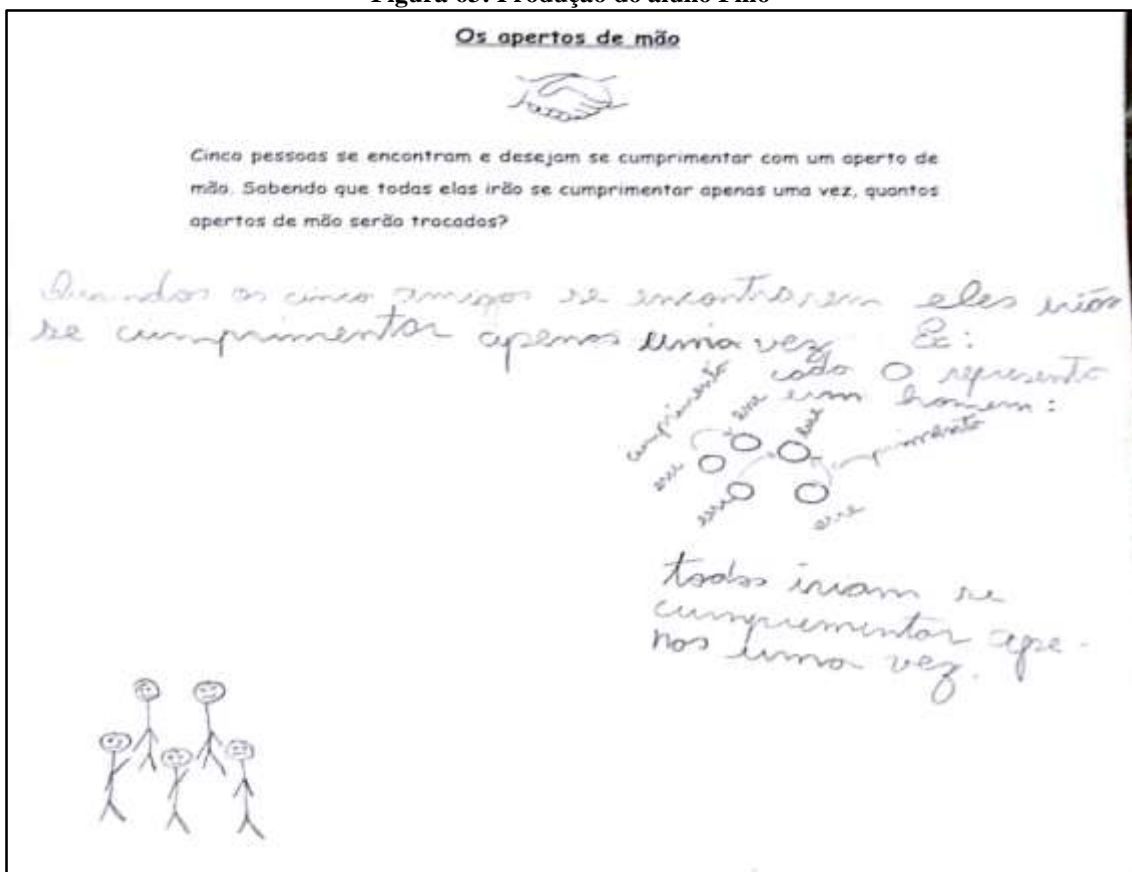 Os apertos de mão
Cinco pessoas se encontram e desejam se cumprimentar com um aperto de
mão. Sabendo que todas elas irão se cumprimentar apenas uma vez, quantos
apertos de mão serão trocados?
Quandos os cinco amigos se encontrarem eles irião
se cumprimentar apenas uma vez Ex:
cada O representa
um homem:
cumprimento
esse
cumprimento
esse
esse
todos iriam se
cumprementar ape-
nos uma vez.